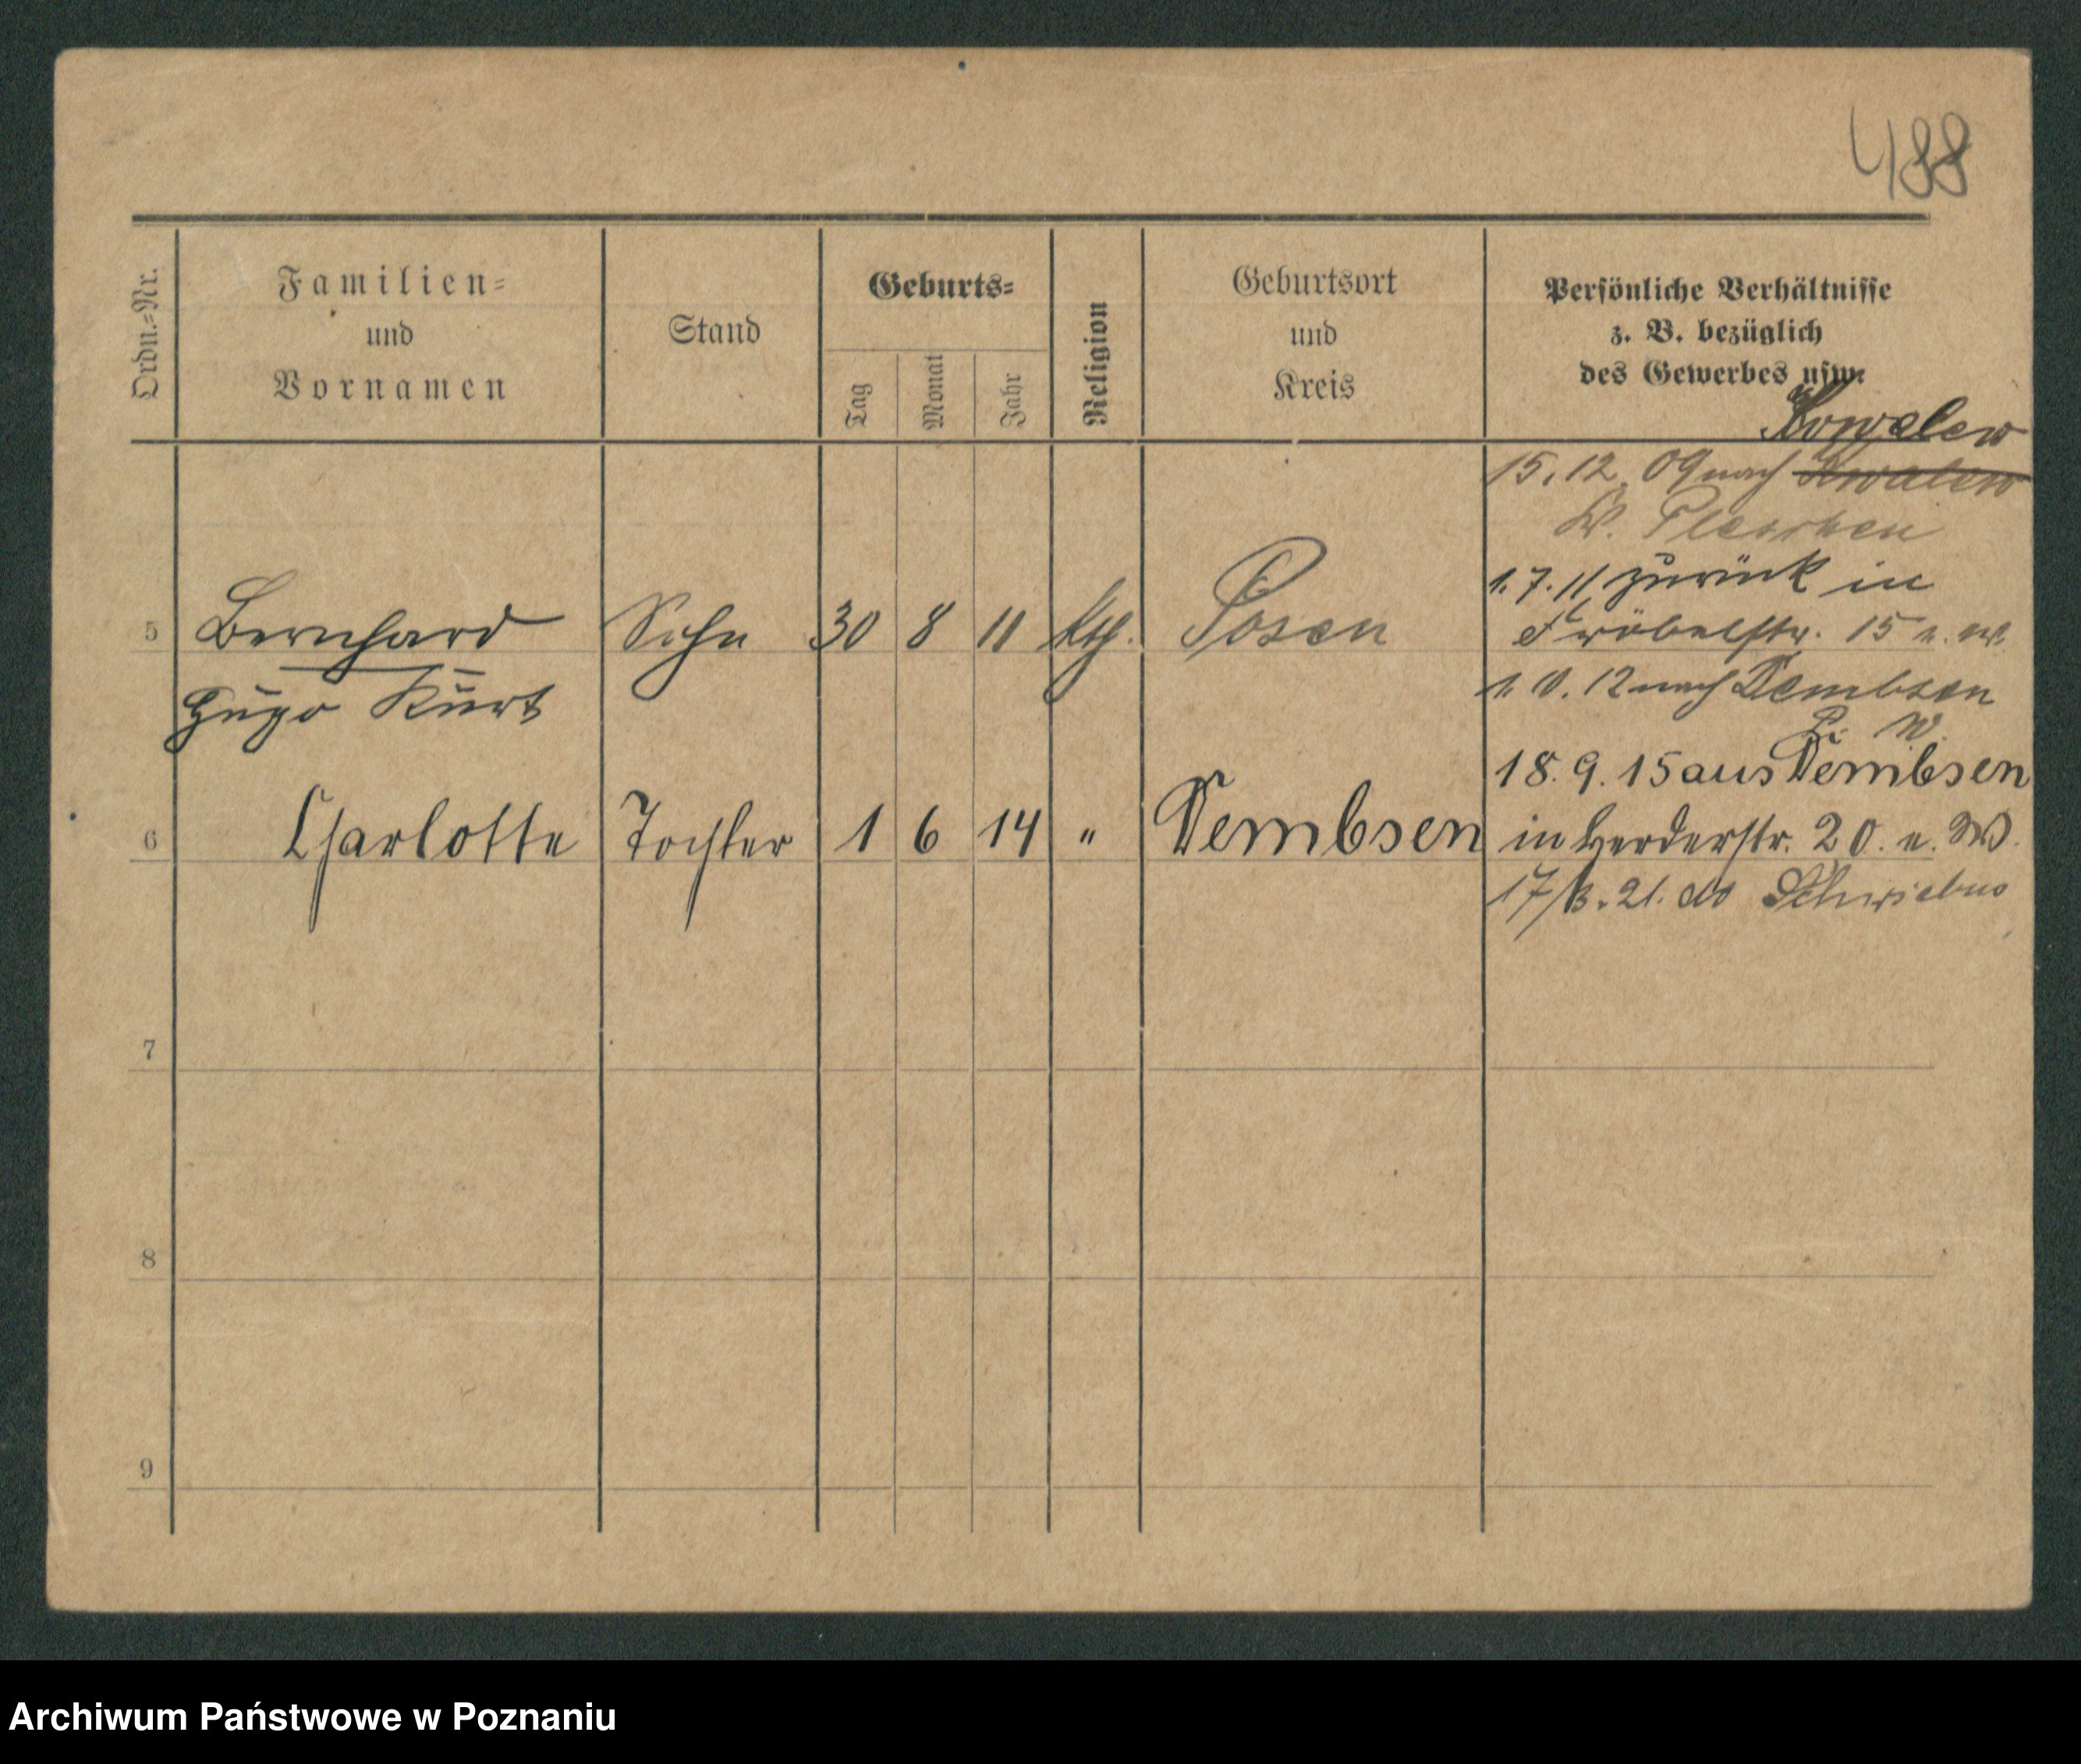 488
Ordn.=Nr.
Familien=
und
Vornamen
Stand
Geburts=
Tag
Monat
Jahr
Religion
Geburtsort
und
Kreis
Persönliche Verhältnisse
z. B. bezüglich
des Gewerbes usw.
Kowalew
15.12.09 nach Kowalew
Pleschen
1.7.11 zurück in
5 Bernhard Sohn 30 8 11 kth. Posen Fröbelstr. 15 e. W.
Hugo Kurt
1.10.12 nach Dembsen
P. W.
18.9.15 aus Dembsen
6 Charlotte Tochter 1 6 14 " Dembsen in Herderstr. 20. e. W.
17/3.21. Schwiebus
7
8
9
Archiwum Państwowe w Poznaniu